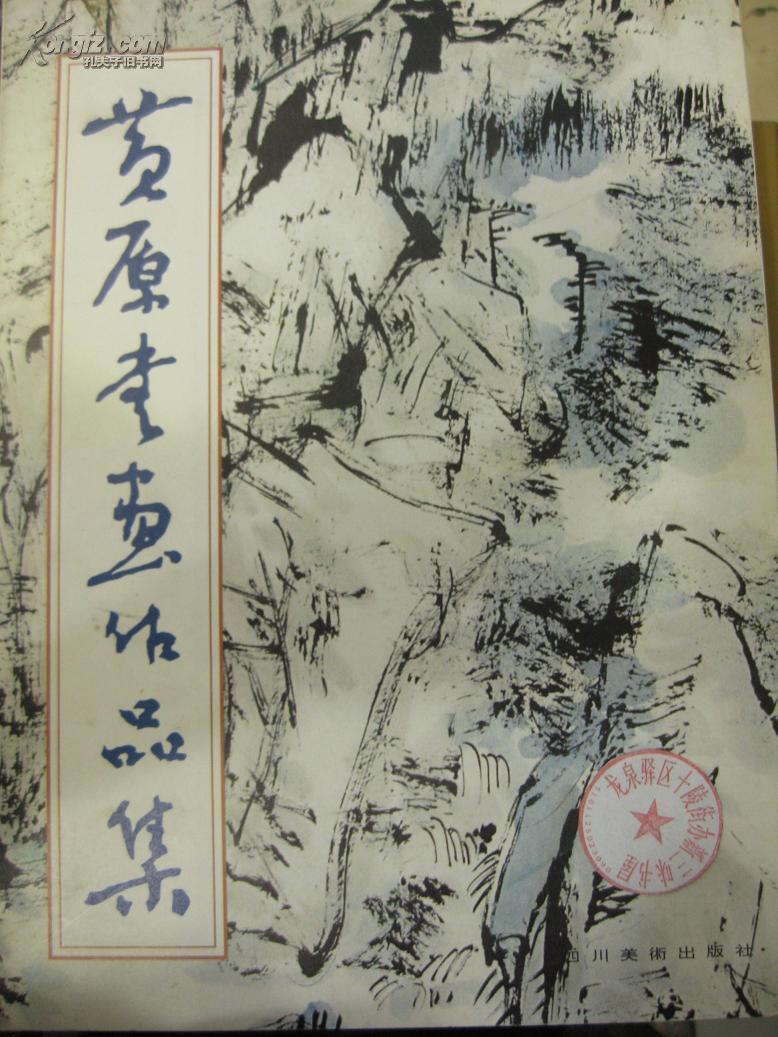 Kongfz.com
孔夫子旧书网
黄原书画作品集
龙泉驿区十陵街办新三味书屋
四川美術出版社